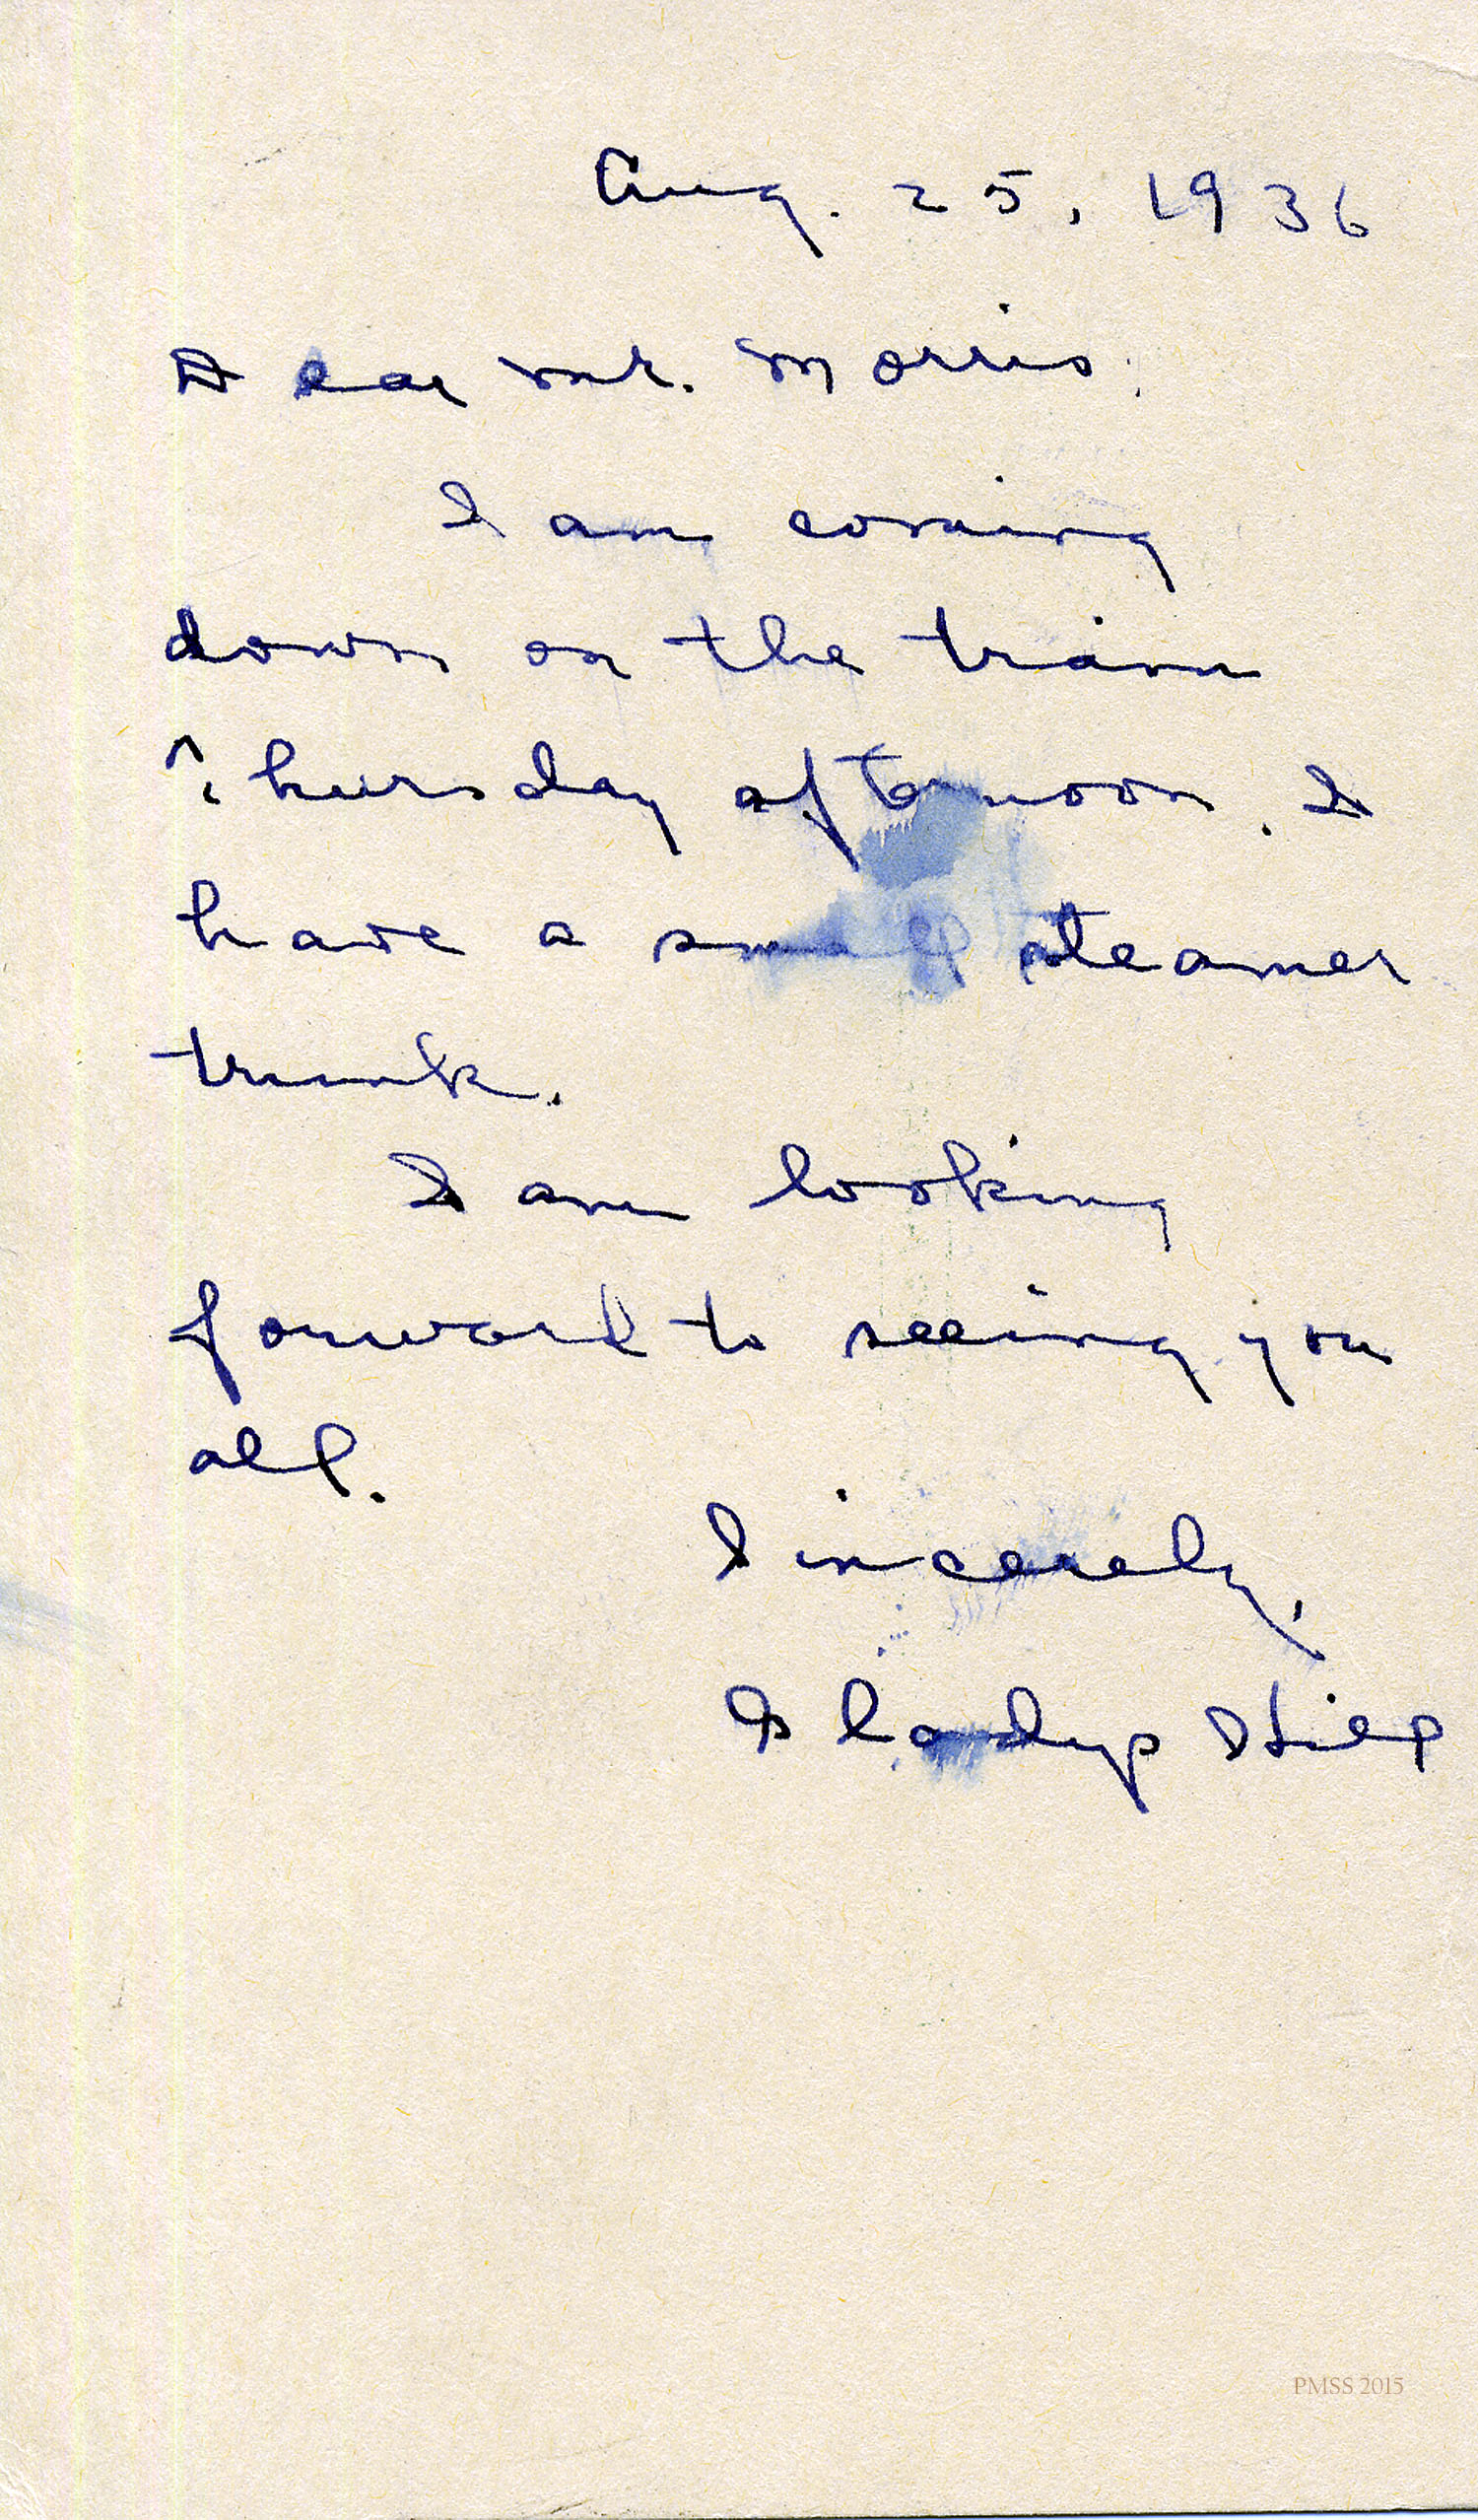 Aug. 25, 1936
Dear Mr. Morris:
I am coming
down on the train
Thursday afternoon. I
have a small steamer
trunk.
I am looking
forward to seeing you
all.
Sincerely,
Gladys Hill
PMSS 2015